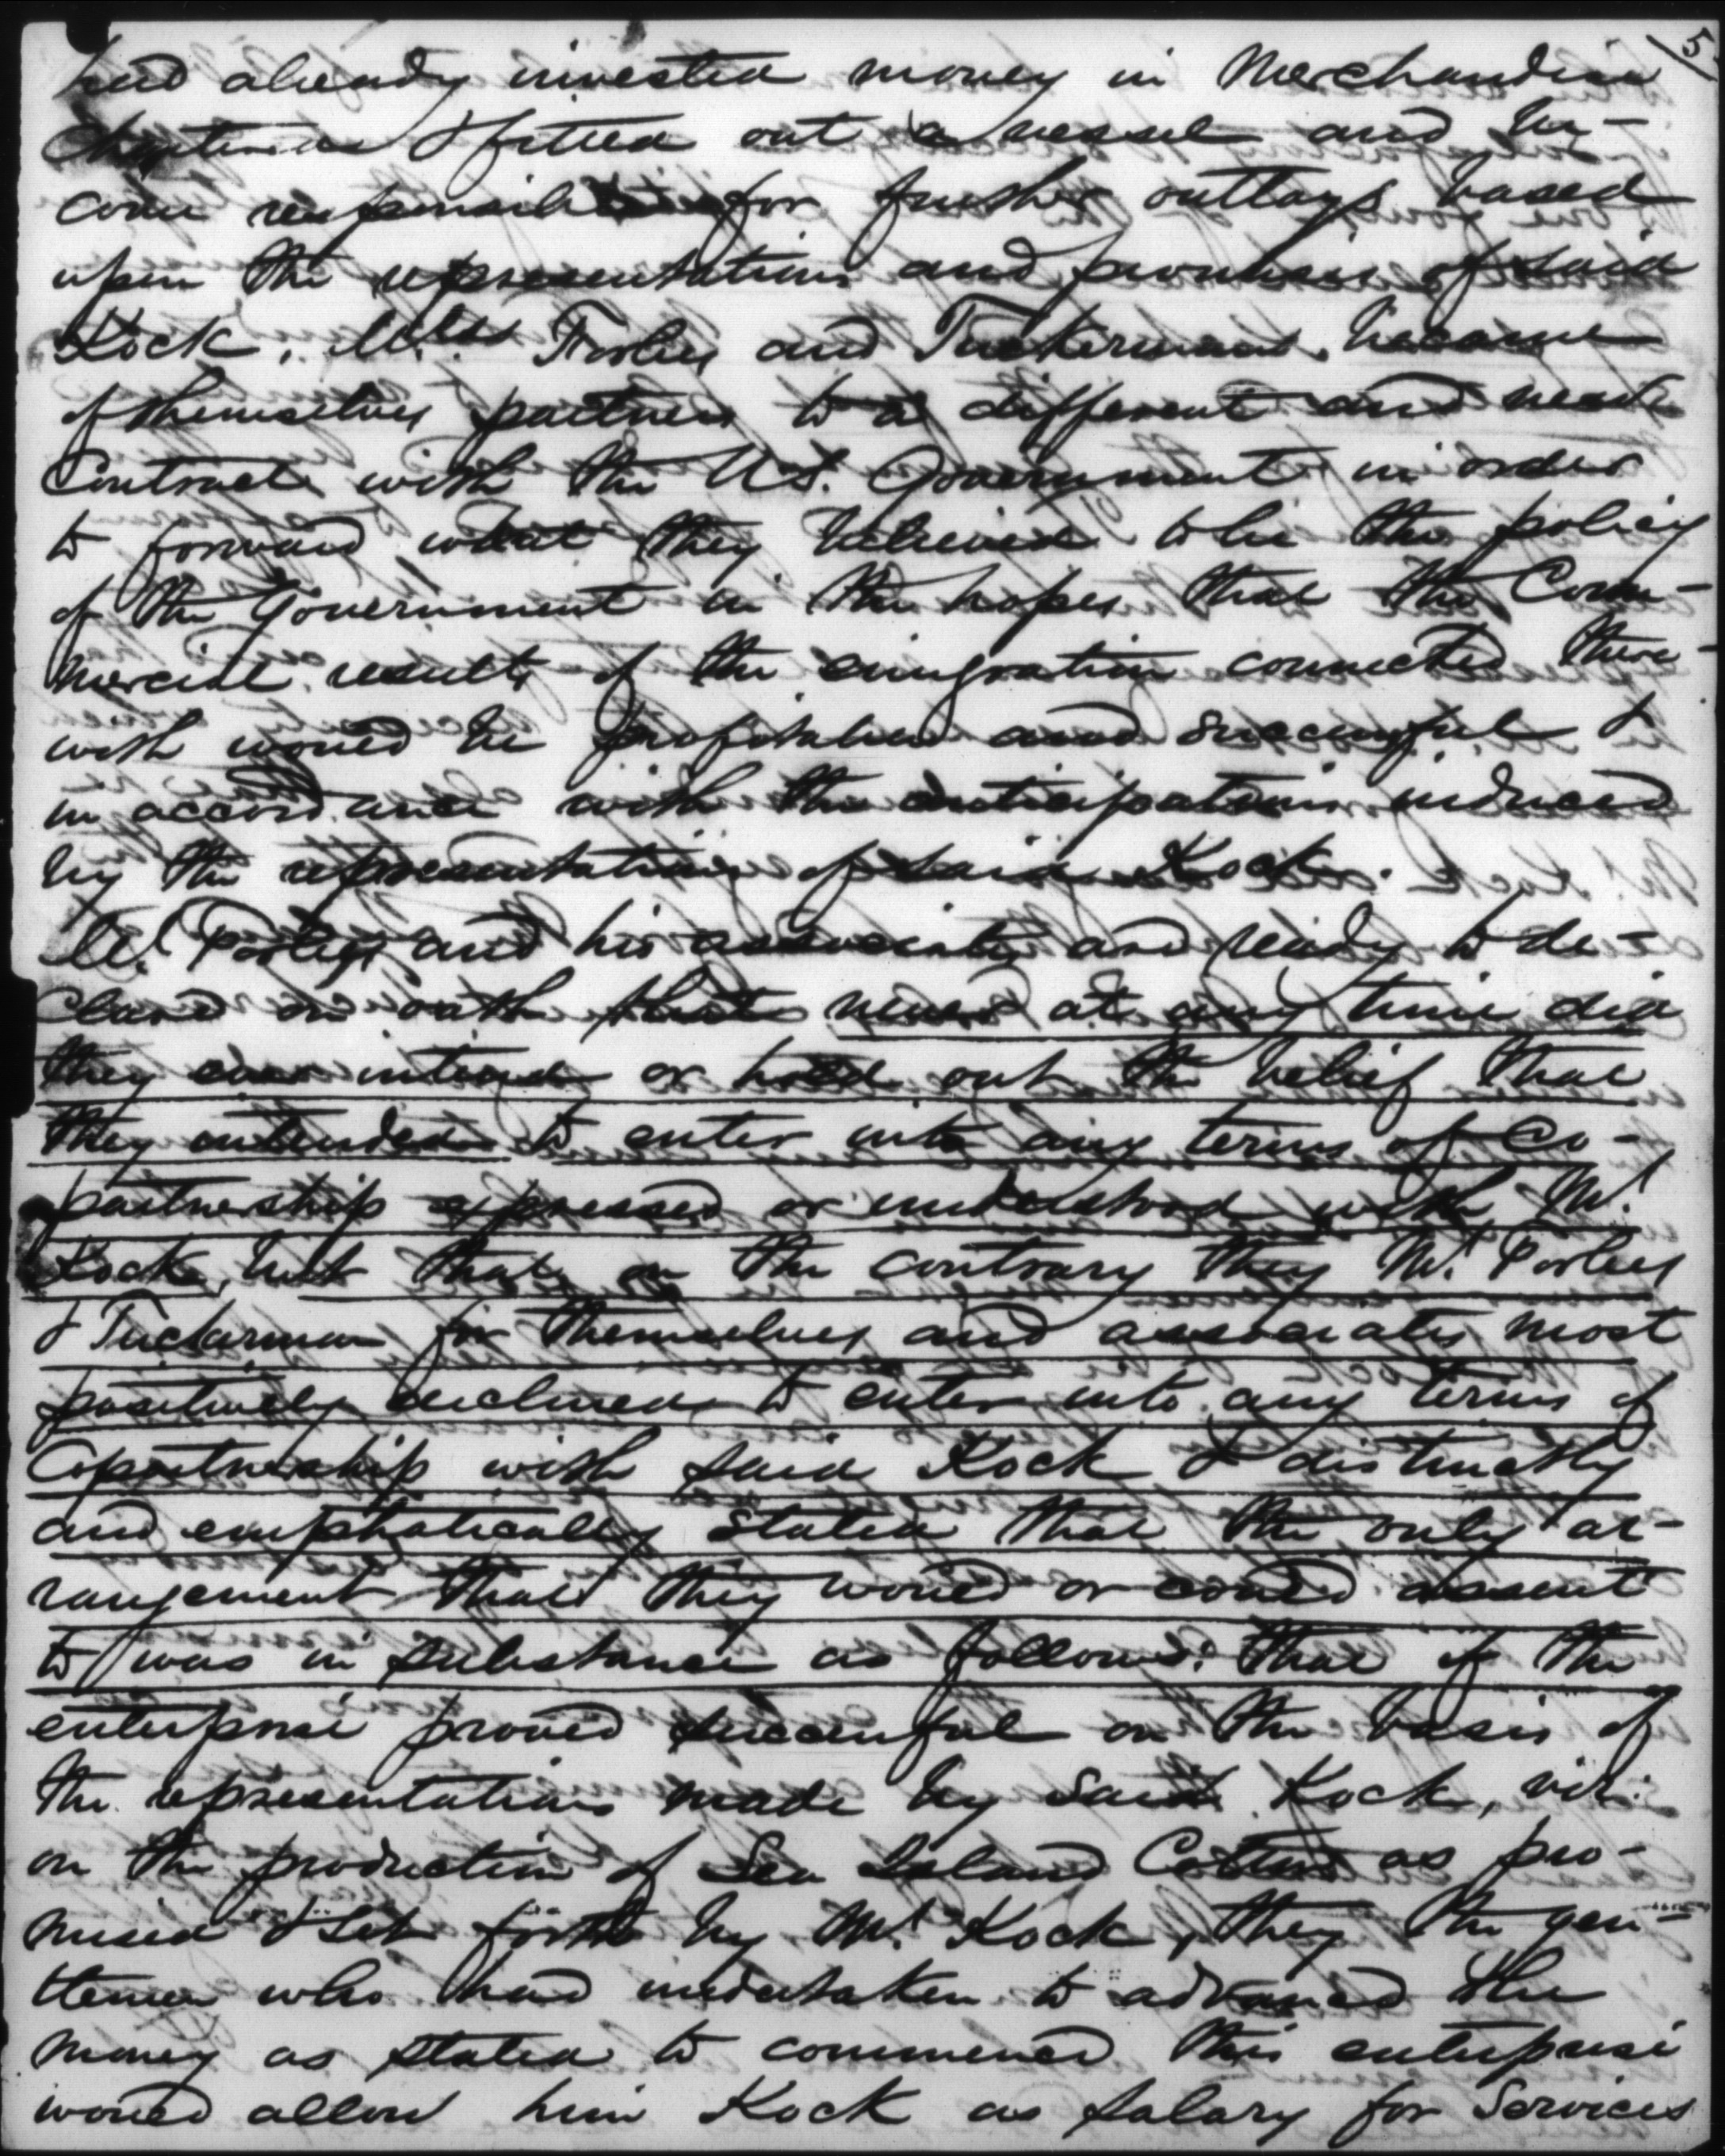 5
had already invested money in Merchandise
Chartered & fitted out a vessel and be-
come responsible for further outlays based
upon the representations and promises of said
Kock. Forbes and Tuckerman, became
of themselves parties to a different and new
Contract with the U.S. Government in order
to forward what they believed to be the policy
of the Government in the hopes that the Com-
mercial results of the emigration connected there-
with would be profitable and successful &
in accordance with the anticipations induced
by the representations of said Kock.
Mr. Forbes and his associates are ready to de-
clare on oath that never at any time did
they ever intend or hold out the belief that
they intended to enter into any terms of Co-
partnership expressed or understood with Mr.
Kock, but that on the contrary they Mr. Forbes
& Tuckerman for themselves and associates most
positively declined to enter into any terms of
Copartnership with said Kock & distinctly
and emphatically stated that the only ar-
rangement that they would or could assent
to was in substance as follows: that if the
enterprise proved successful on the basis of
the representations made by said Kock, viz:
on the production of Sea Island Cotton as pro-
mised & set forth by Mr. Kock, they the gen-
tlemen who had undertaken to advance the
money as stated to commence this enterprise
would allow him Kock as salary for Services